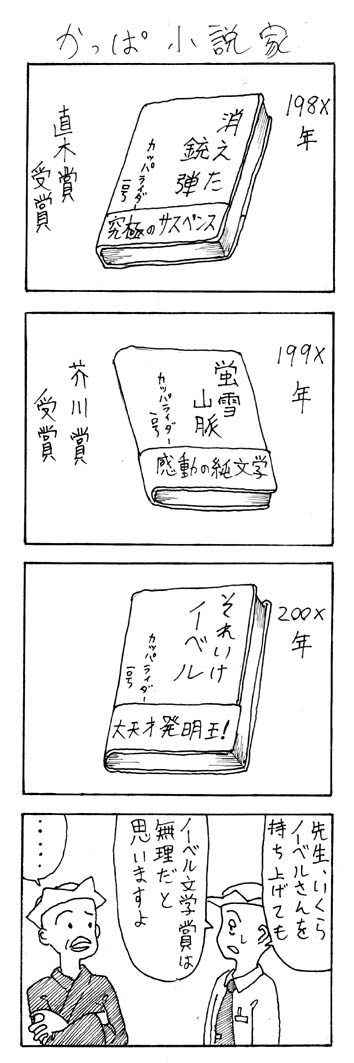 かっぱ小説家
198X
年
消えた
銃弾
カッパライダー
一号
究極のサスペンス
直木賞
受賞
199X
年
蛍雪
山脈
カッパライダー
一号
感動の純文学
芥川賞
受賞
200X
年
それいけ
イーベル
カッパライダー
一号
大天才発明王!
先生、いくら
ノーベルさんを
持ち上げても
ノーベル文学賞は
無理だと
思いますよ
・・・・・